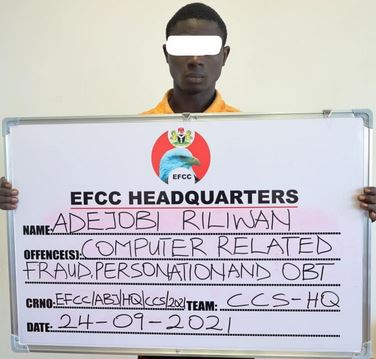 EFCC
EFCC HEADQUARTERS
NAME: ADEJOBI RILIWAN
OFFENCE(S): COMPUTER RELATED
FRAUD, PERSONATION AND OBT
CRNO: EFCC/ABJ/HQ/CCS/2021 TEAM: CCS-HQ
DATE: 24-09-2021